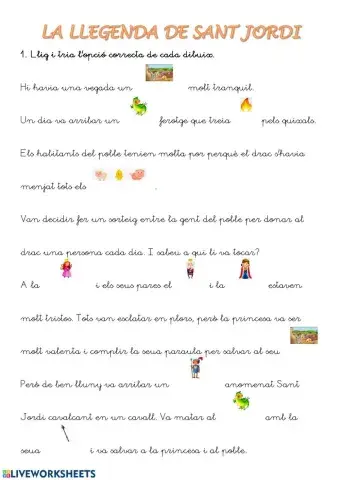 LA LLEGENDA DE SANT JORDI
1. Llig i tria l'opció correcta de cada dibuix.
Hi havia una vegada un molt tranquil.
Un dia va arribar un ferotge que treia pels quixals.
Els habitants del poble tenien molta por perquè el drac s'havia
menjat tots els .
Van decidir fer un sorteig entre la gent del poble per donar al
drac una persona cada dia. I sabeu a qui li va tocar?
A la i els seus pares el i la estaven
molt tristos. Tots van esclatar en plors, però la princesa va ser
molt valenta i complir la seua paraula per salvar al seu
Però de ben lluny va arribar un anomenat Sant
Jordi cavalcant en un cavall. Va matar al amb la
seua i va salvar a la princesa i al poble.
LIVEWORKSHEETS